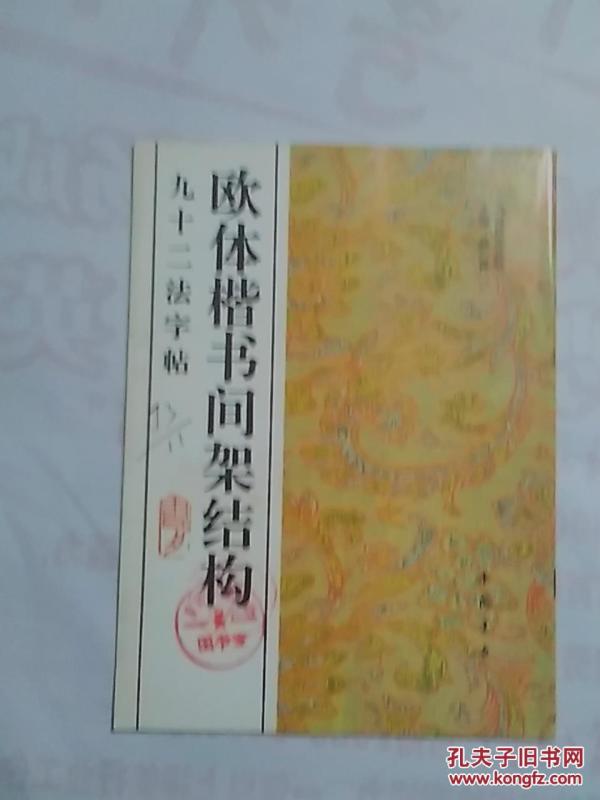 欧体楷书间架结构
九十二法字帖
中国书店
图书室
孔夫子旧书网
www.kongfz.com